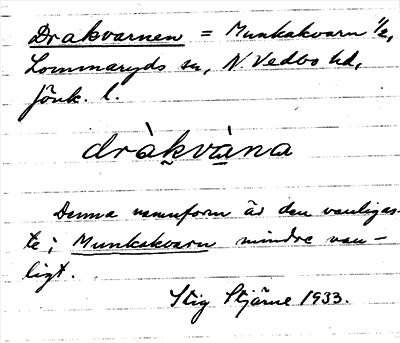 Drakvarnen = Munkakvarn 1/2,
Lommaryds sn, N. Vedbo hd,
Jönk. l.
dràkvàna
Denna namnform är den vanligas-
te; Munkakvarn mindre van-
ligt.
Stig Stjärne 1933.